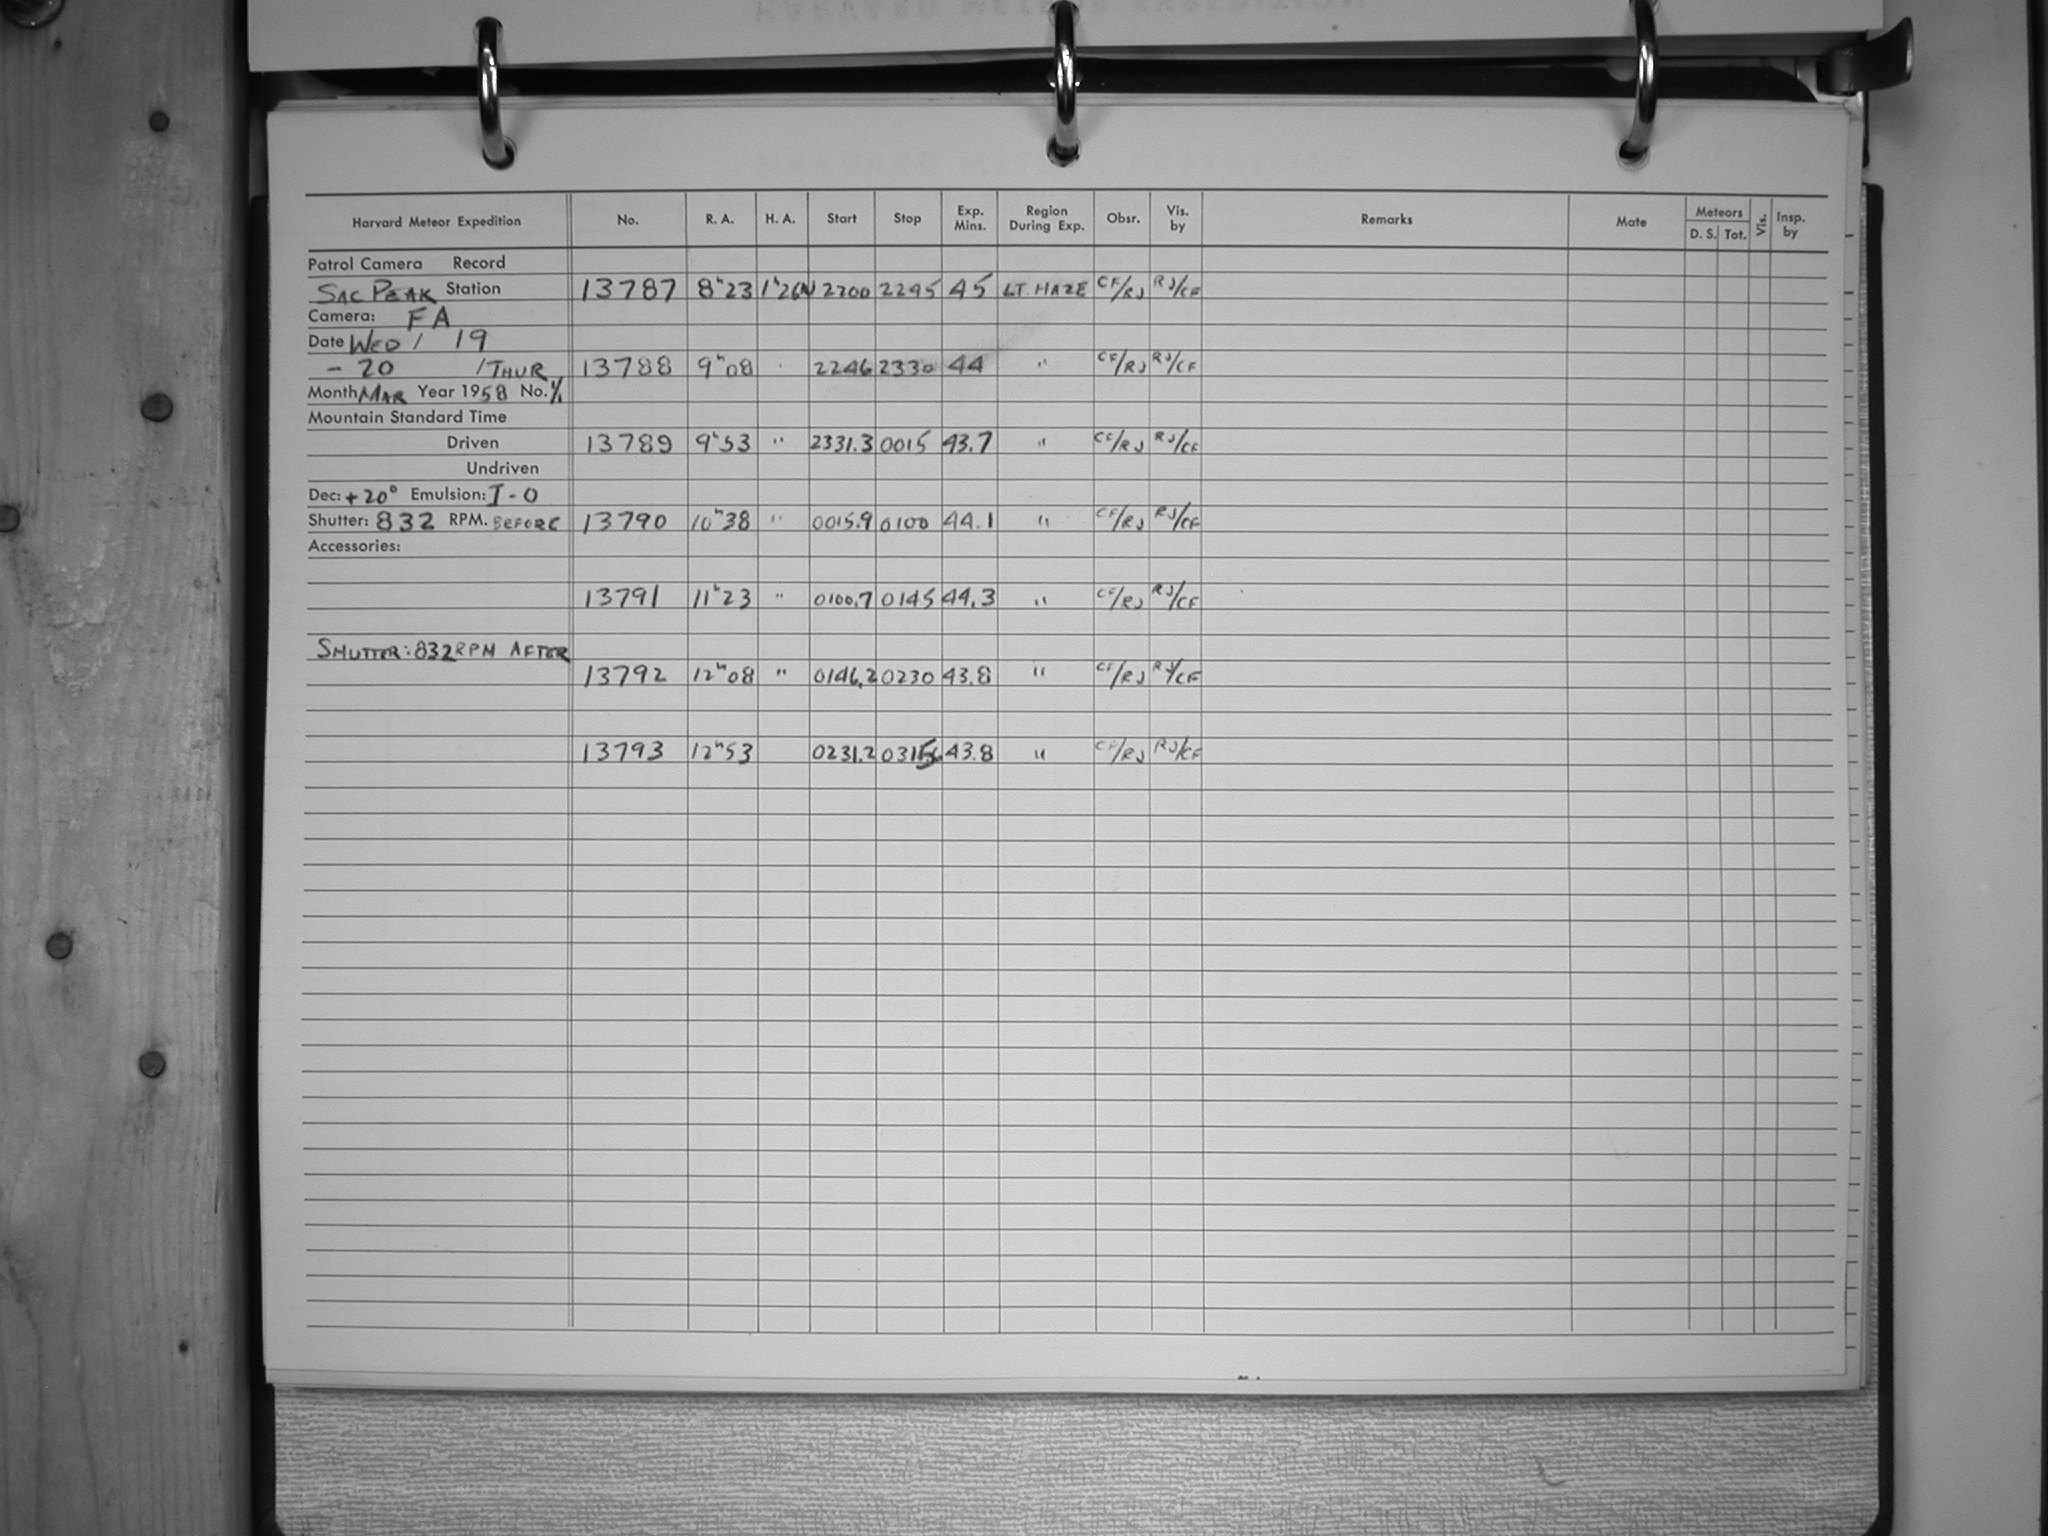 Harvard Meteor Expedition No. R. A. H. A. Start Stop Exp. Mins. Region During Exp. Obsr. Vis. by Remarks Mate Meteors D. S. Tot. Vis. Insp. by
Patrol Camera Record
SAC PEAK Station 13787 8h23 1h26W 2200 2245 45 LT. HAZE CF/RJ RJ/CF
Camera: FA
Date WED / 19
- 20 / THUR 13788 9h08 " 2246 2330 44 " CF/RJ RJ/CF
Month MAR Year 1958 No. 1/1
Mountain Standard Time
Driven 13789 9h53 " 2331.3 0015 43.7 " CF/RJ RJ/CF
Undriven
Dec: +20° Emulsion: I-O
Shutter: 832 RPM. BEFORE 13790 10h38 " 0015.9 0100 44.1 " CF/RJ RJ/CF
Accessories:
13791 11h23 " 0100.7 0145 44.3 " CF/RJ RJ/CF
SHUTTER: 832 RPM AFTER
13792 12h08 " 0146.2 0230 43.8 " CF/RJ RJ/CF
13793 12h53 0231.2 0315 43.8 " CF/RJ RJ/CF